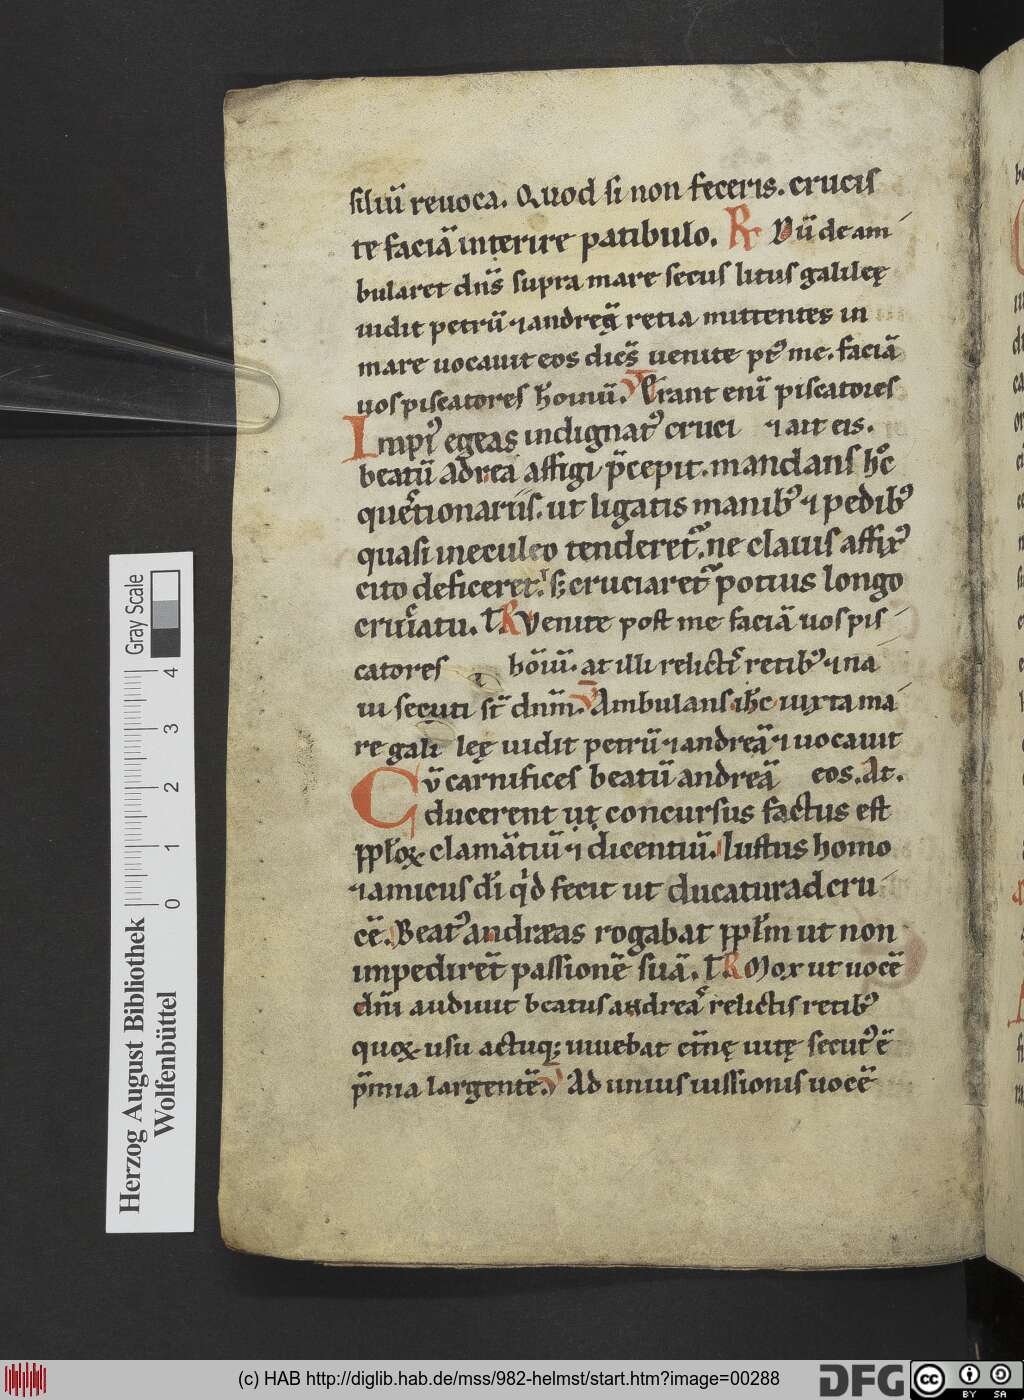 siliū reuoca. Quod si non feceris. crucis
te faciā interire patibulo. R Dū deam
bularet dn̄s supra mare secus litus galileę
uidit petrū ⁊ andreā retia mittentes in
mare uocauit eos dicēs uenite pꝰ me. faciā
uos piscatores homīū. V Erant enī piscatores
Impꝰ egeas indignatꝰ cruci ⁊ ait eis.
beatū Adreā affigi p̄cepit. mandans h̄c
quetionariis. ut ligatis manibꝰ ⁊ pedibꝰ
quasi ineculeo tenderet͛. ne clauis affixꝰ
cito deficeret. s; cruciaret͛ potius longo
cruciatu. T R Venite post me faciā uos pis
catores hoīū. at illi relictis retibꝰ ⁊ na
ui secuti st̄ dn̄m. V Ambulans ih̄c iuxta ma
re gali leę uidit petrū ⁊ andreā ⁊ uocauit
Cū carnifices beatū andreā eos. At.
ducerent ut concursus factus est
ppłoꝝ clamātiū ⁊ dicentiū. Iustus homo
⁊ amicus di q̇d fecit ut ducatur ad cru
cē. Beatꝰ andræas rogabat ppłm ut non
impediret̄ passionē suā. T R Mox ut uocē
dn̄i audiuit beatus andreaſ relictis retibꝰ
quoꝝ usu actuq; uiuebat et̄nę uitę secutꝰ ē
p̄mia largentē. V Ad unius iussionis uocē
Herzog August Bibliothek
Wolfenbüttel
0 1 2 3 4
Gray Scale
(c) HAB http://diglib.hab.de/mss/982-helmst/start.htm?image=00288
DFG
cc BY SA